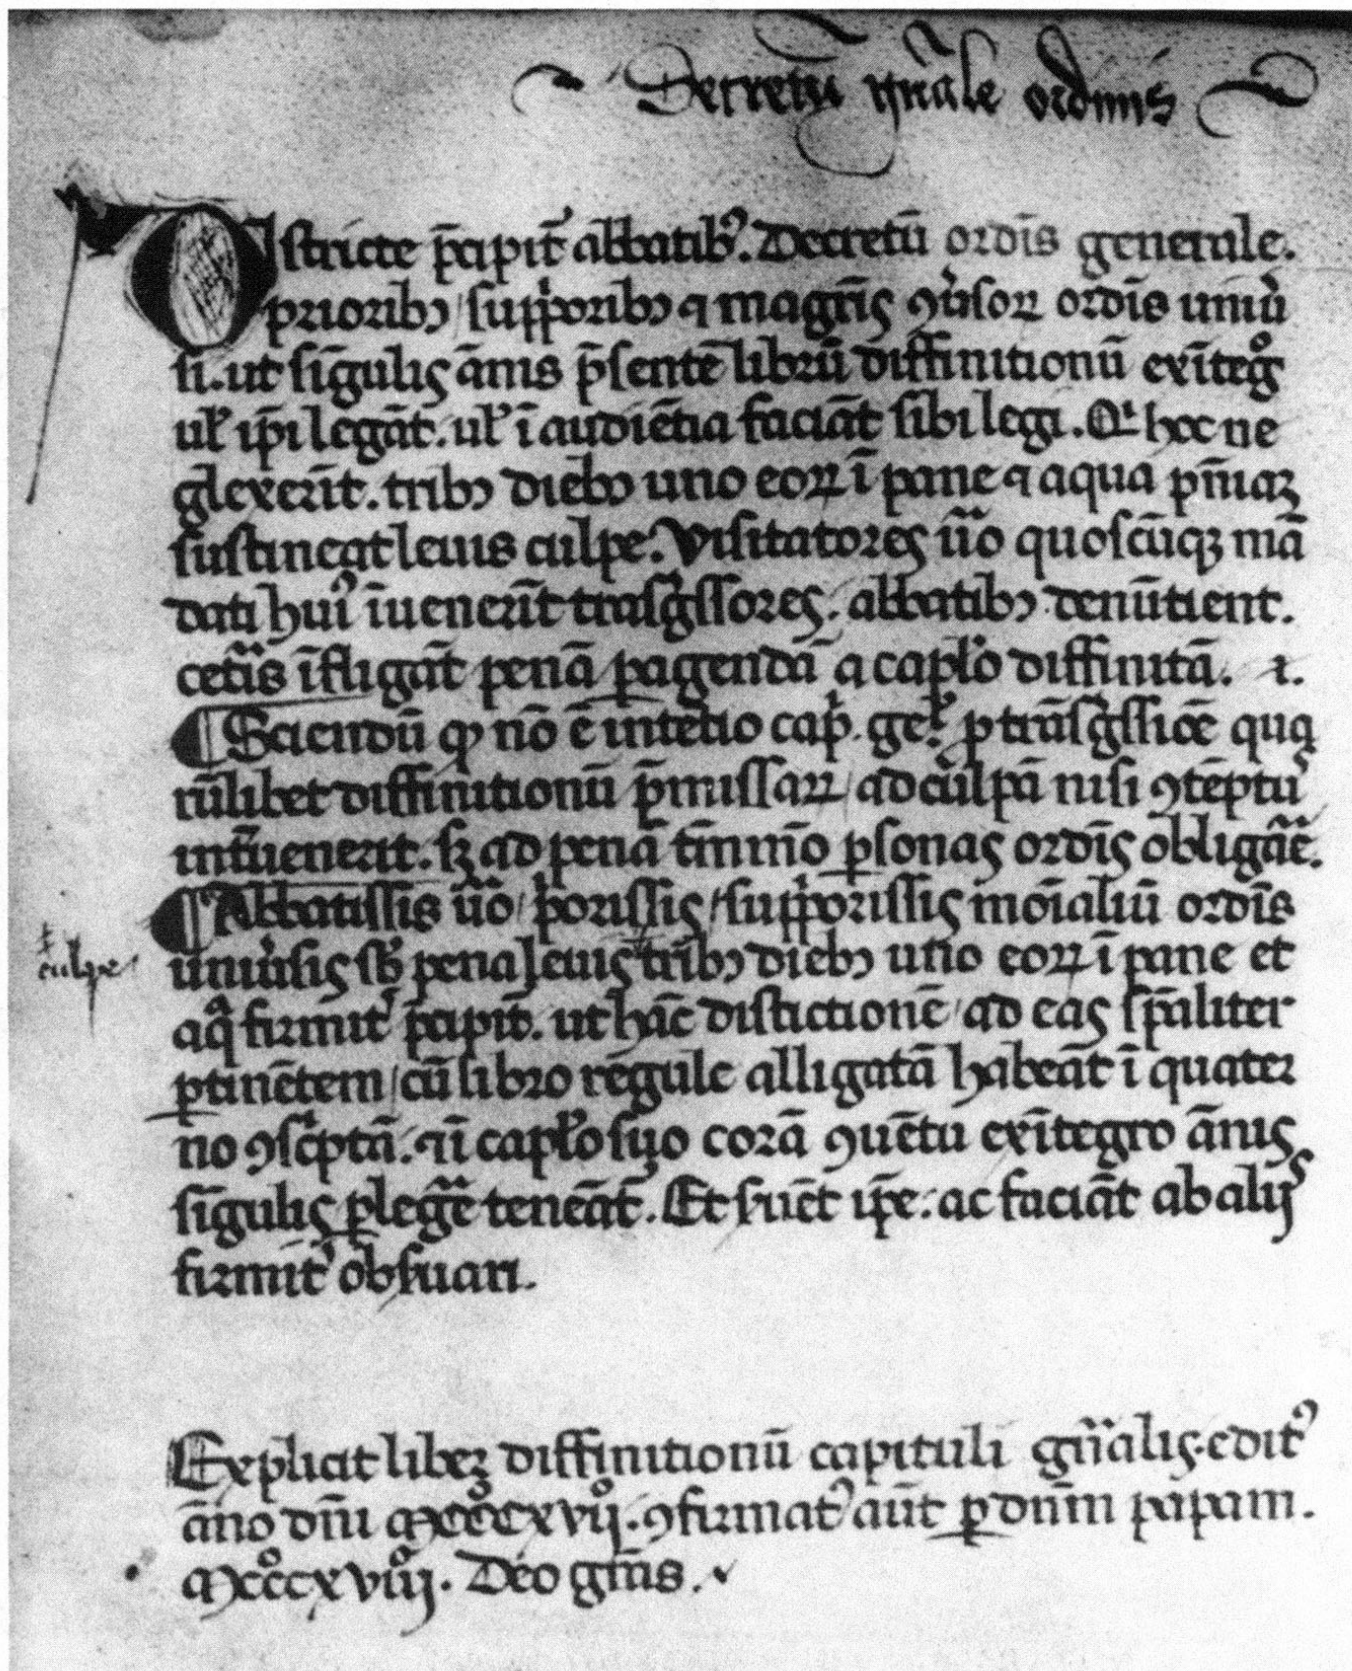 Decretū gn̄ale ordinis
Districte p̄cipit᷑ abbatibꝰ. Decretū ordīs generale.
prioribꝫ / supp̄oribꝫ ⁊ magr̄is ꝯūsoꝝ ordīs uniũ
si. ut sīgulis ānis p̄sentē librū diffinitionū exītegͦ
uł ip̄i legāt. uł ī audiētia faciāt sibi legi. Qͥ hoc ne
glexerīt. tribꝫ diebꝫ uno eoꝝ ī pane ⁊ aqua pn̄iaꝫ
sustineat leuis culpe. Visitatores ũo quoscūqꝫ mā
dati huiꝰ īuenerīt trāsgͥssores. abbatibꝫ denūtient.
cetīs īfligāt penā ꝑagendā a capło diffinitā. ⁊.
¶ Sciendū ꝙ nō ē intētio cap̄. ge᷑. ꝓ trāsgͥssiōē qua
rūlibet diffinitionū p̄missaꝝ / ad culpā nisi ꝯtēptꝰ
intūenerit. sꝫ ad penā tm̄mō ꝑsonas ordīs obligāe᷑.
¶ Abbatissis ũo / pͥorissis / supp̄orissis moīaliū ordīs
uniũsis sb̄ pena leuis tribꝫ diebꝫ uno eoꝝ ī pane et
culpe
aqͣ firmit᷑ p̄cipit᷑. ut hāc distictionē / ad eas sp̄aliter
ꝑtinētem / cū libro regule alligatā habeāt ī quater
no ꝯscͥptā. ⁊ ī capło suo corā ꝯuētu exītegro ānis
sīgulis ꝑlegẽ teneāt᷑. Et s̄uēt ip̄e: ac faciāt ab alijs
firmit᷑ obs̄uari.
Explicit liber diffinitionū capituli gn̄alis. editꝰ
āno dn̄i Mͦcccxvijͦ. ꝯfirmatꝰ aūt ꝑ dn̄m papam.
Mͦcccxviijͦ. Deo gr̄as.